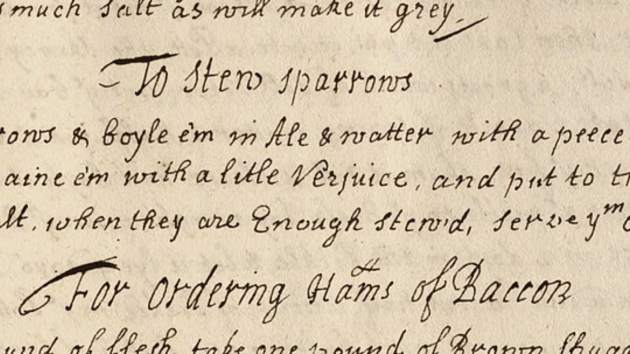 much salt as will make it grey.
To stew sparrows
rows & boyle em in Ale & watter with a peece
aine em with a litle Verjuice, and put to t
lt, when they are Enough stew'd, serve y^m
For ordering Hams of Baccon
ound of flesh take one pound of Brown Shuga